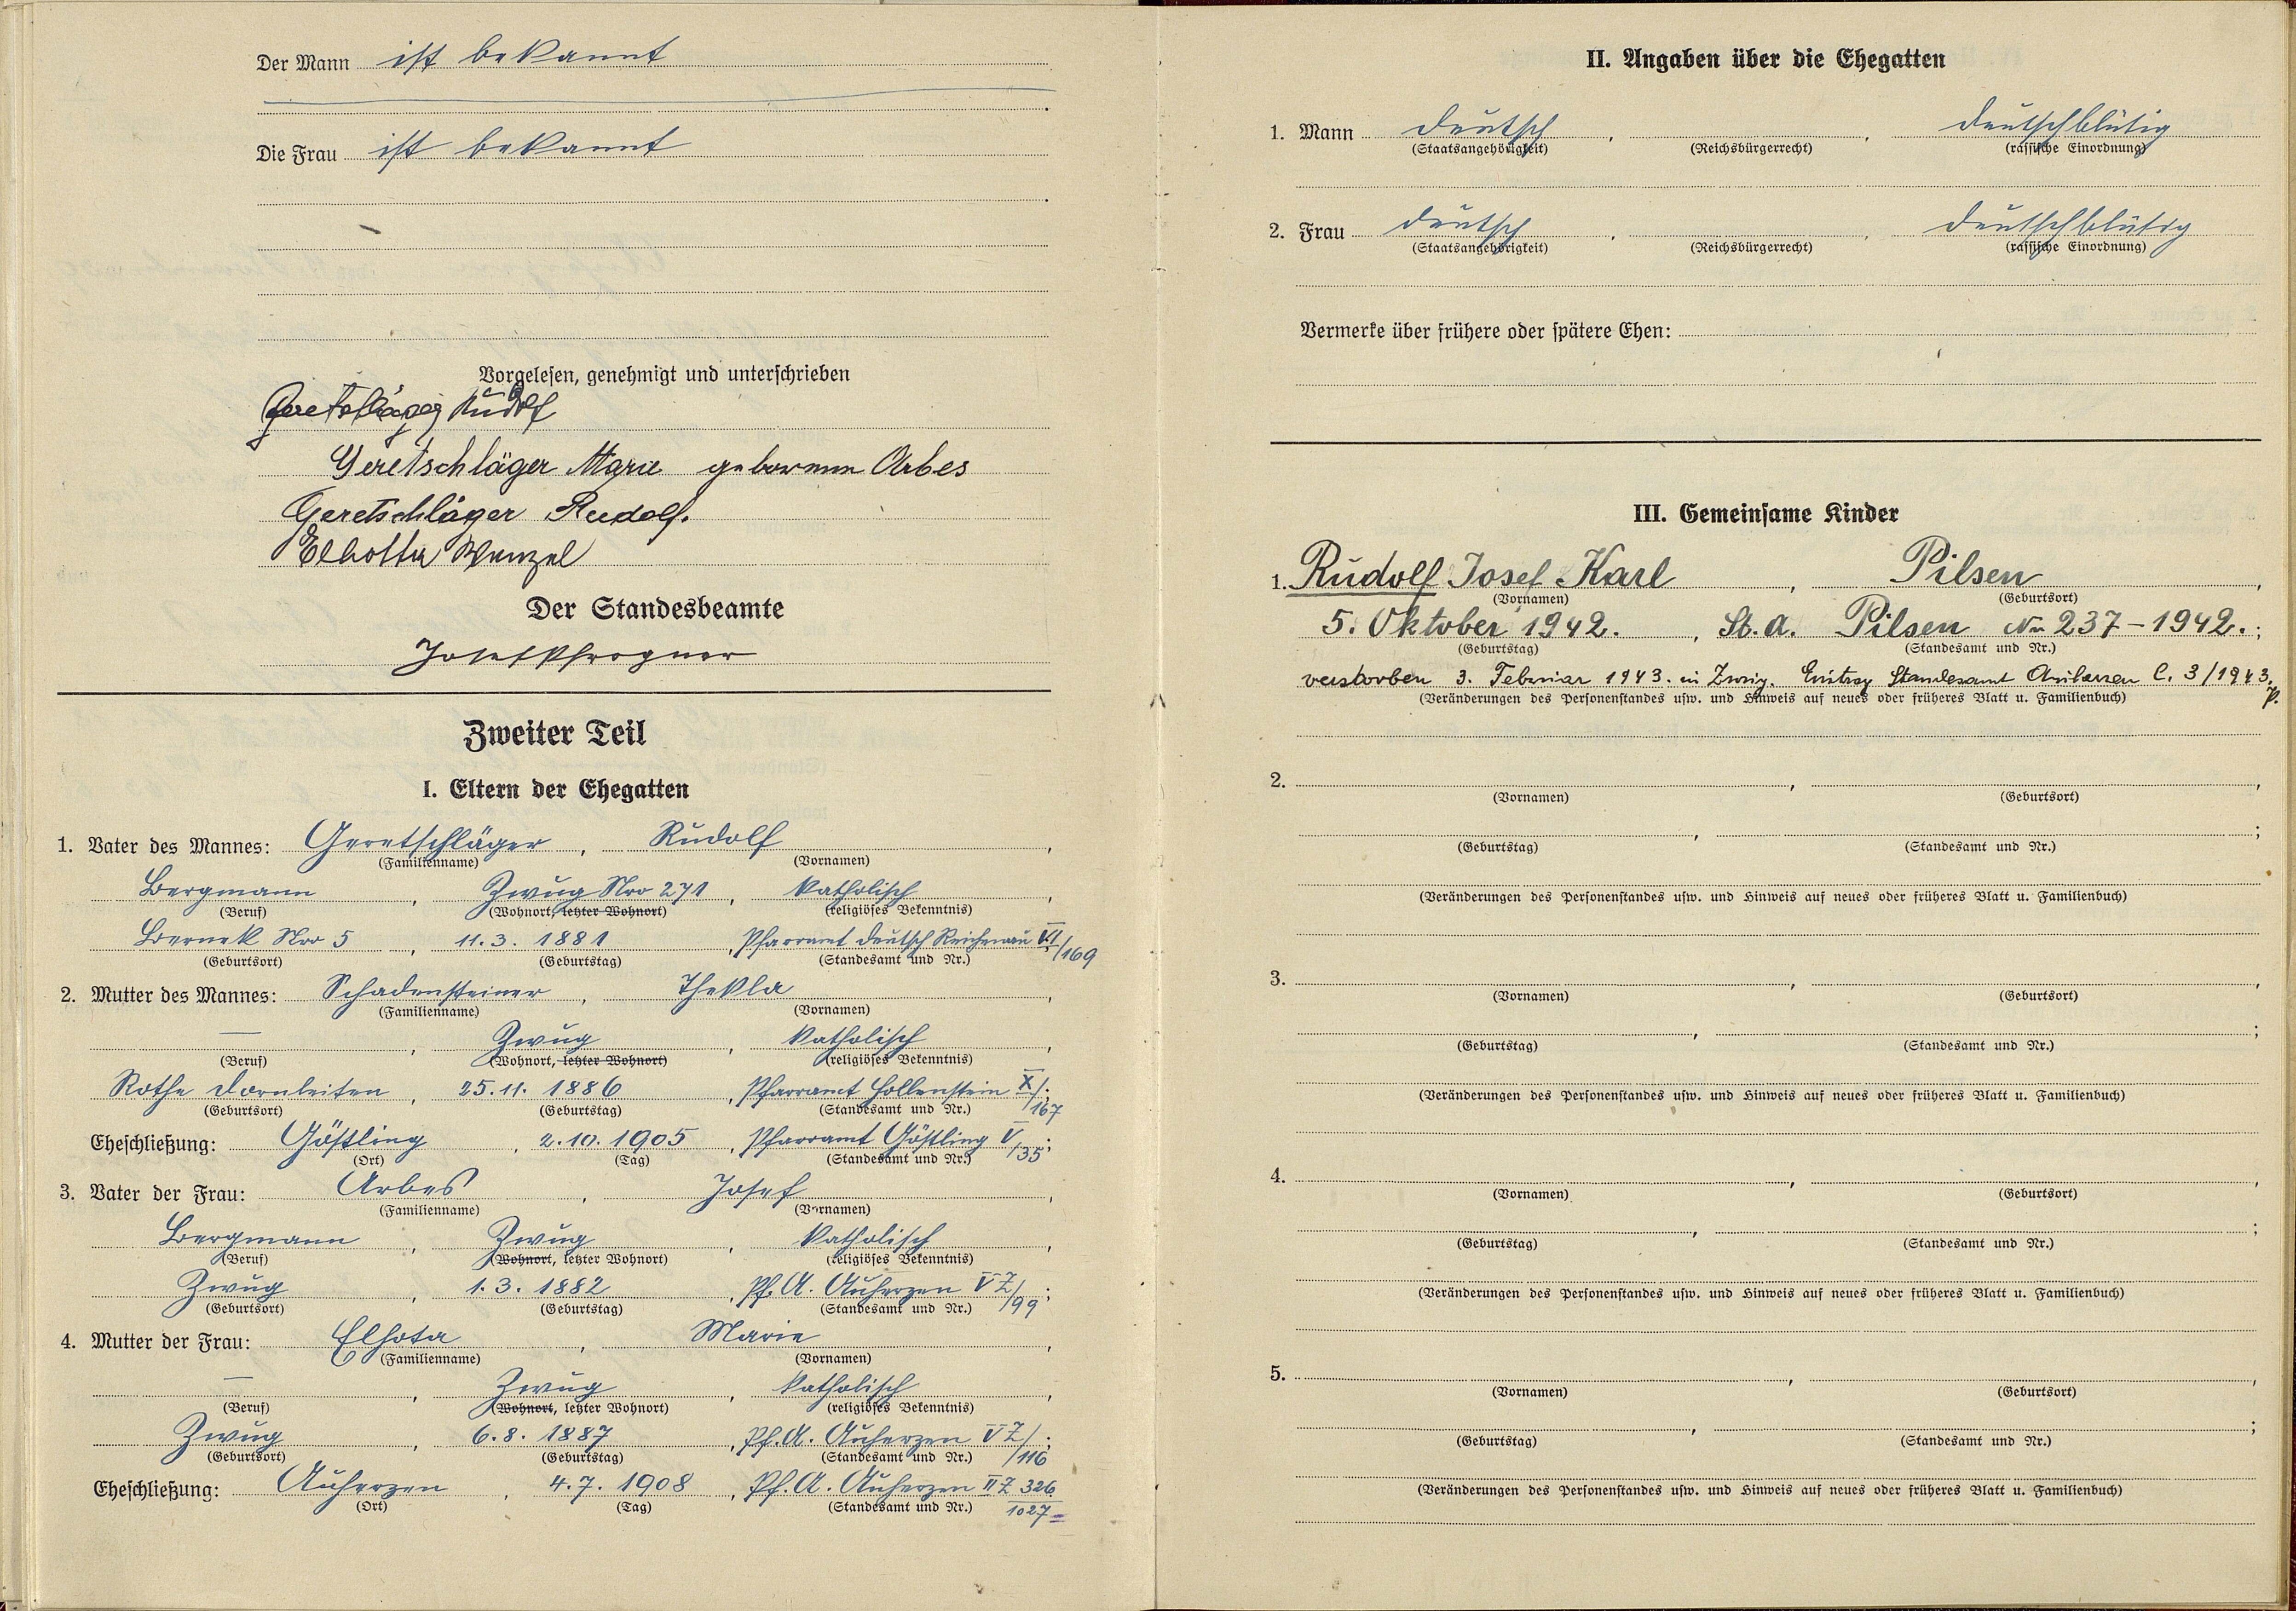 Der Mann ist bekannt
Die Frau ist bekannt
Vorgelesen, genehmigt und unterschrieben
Geretschläger Rudolf
Geretschläger Marie geborenen Arbes
Geretschläger Rudolf.
Elhotta Wenzel
Der Standesbeamte
Josef Pfrogner
Zweiter Teil
I. Eltern der Ehegatten
1. Vater des Mannes: Geretschläger, Rudolf,
(Familienname) (Vornamen)
Bergmann, Zwug Nro 271, katholisch,
(Beruf) (Wohnort, letzter Wohnort) (religiöses Bekenntnis)
Bernek Nro 5, 11.3. 1881, Pfarramt Deutsch Reichenau VI/169
(Geburtsort) (Geburtstag) (Standesamt und Nr.)
2. Mutter des Mannes: Schadensteiner, Thekla,
(Familienname) (Vornamen)
—, Zwug, katholisch,
(Beruf) (Wohnort, letzter Wohnort) (religiöses Bekenntnis)
Rothe Dornleiten, 25.11. 1886, Pfarramt Hollenstein X/167;
(Geburtsort) (Geburtstag) (Standesamt und Nr.)
Eheschließung: Göstling, 2.10. 1905, Pfarramt Göstling V/35;
(Ort) (Tag) (Standesamt und Nr.)
3. Vater der Frau: Arbes, Josef,
(Familienname) (Vornamen)
Bergmann, Zwug, katholisch,
(Beruf) (Wohnort, letzter Wohnort) (religiöses Bekenntnis)
Zwug, 1.3. 1882, Pf. A. Auherzen V Z/99;
(Geburtsort) (Geburtstag) (Standesamt und Nr.)
4. Mutter der Frau: Elhota, Marie,
(Familienname) (Vornamen)
—, Zwug, katholisch,
(Beruf) (Wohnort, letzter Wohnort) (religiöses Bekenntnis)
Zwug, 6.8. 1887, Pf. A. Auherzen V Z/116;
(Geburtsort) (Geburtstag) (Standesamt und Nr.)
Eheschließung: Auherzen, 4.7. 1908, Pf. A. Auherzen II Z 326/1027
(Ort) (Tag) (Standesamt und Nr.)
II. Angaben über die Ehegatten
1. Mann deutsch, , deutschblütig
(Staatsangehörigkeit) (Reichsbürgerrecht) (rassische Einordnung)
2. Frau deutsch, , deutschblütig
(Staatsangehörigkeit) (Reichsbürgerrecht) (rassische Einordnung)
Vermerke über frühere oder spätere Ehen:
III. Gemeinsame Kinder
1. Rudolf Josef Karl, Pilsen,
(Vornamen) (Geburtsort)
5. Oktober 1942., St. A. Pilsen Nr. 237-1942.;
(Geburtstag) (Standesamt und Nr.)
verstorben 3. Februar 1943. in Zwug. Eintrag Standesamt C. 3/1943.
(Veränderungen des Personenstandes usw. und Hinweis auf neues oder früheres Blatt u. Familienbuch)
2. , ,
(Vornamen) (Geburtsort)
, ;
(Geburtstag) (Standesamt und Nr.)
(Veränderungen des Personenstandes usw. und Hinweis auf neues oder früheres Blatt u. Familienbuch)
3. , ,
(Vornamen) (Geburtsort)
, ;
(Geburtstag) (Standesamt und Nr.)
(Veränderungen des Personenstandes usw. und Hinweis auf neues oder früheres Blatt u. Familienbuch)
4. , ,
(Vornamen) (Geburtsort)
, ;
(Geburtstag) (Standesamt und Nr.)
(Veränderungen des Personenstandes usw. und Hinweis auf neues oder früheres Blatt u. Familienbuch)
5. , ,
(Vornamen) (Geburtsort)
, ;
(Geburtstag) (Standesamt und Nr.)
(Veränderungen des Personenstandes usw. und Hinweis auf neues oder früheres Blatt u. Familienbuch)